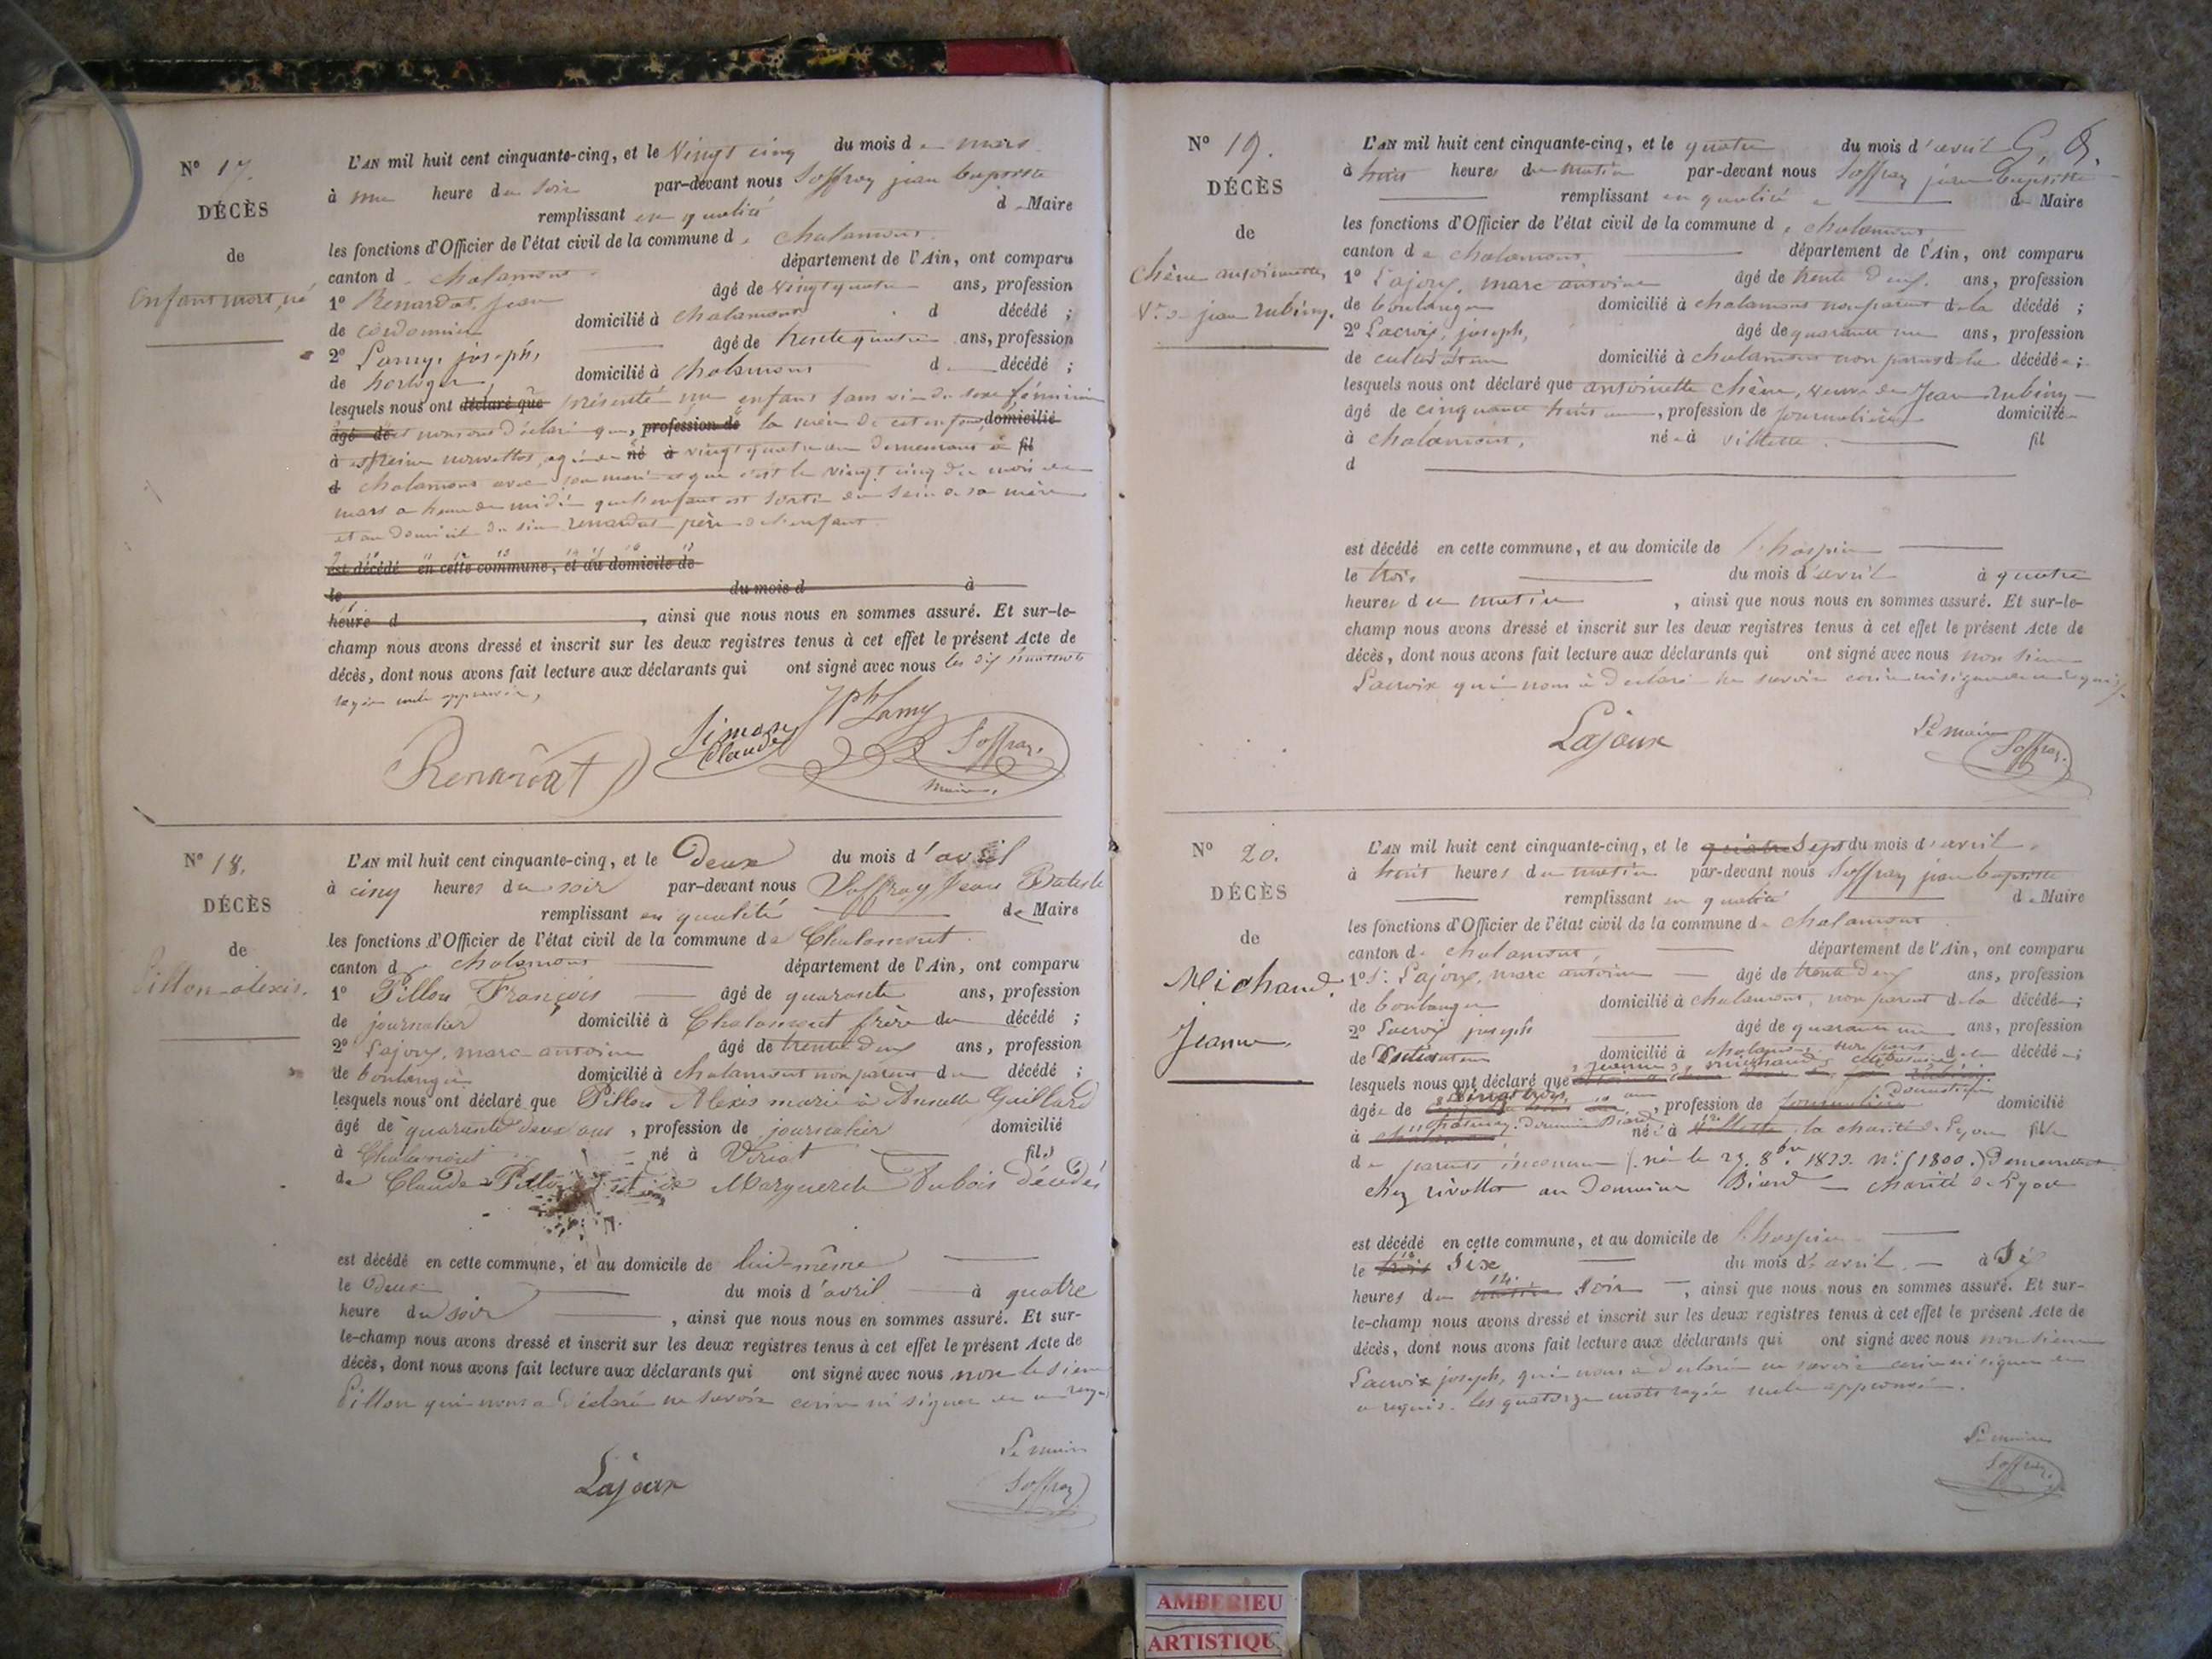 N° 17.
DÉCÈS
de
Enfant mort, né
L'AN mil huit cent cinquante-cinq, et le Vingt cinq du mois de mars
à une heure du soir par-devant nous Soffray jean baptiste
remplissant en qualité de Maire
les fonctions d'Officier de l'état civil de la commune de chalamont
canton de chalamont département de l'Ain, ont comparu
1° Renardat, Jean âgé de vingt quatre ans, profession
de cordonnier domicilié à chalamont d décédé ;
2° Lamy, joseph, âgé de trente quatre ans, profession
de horloger, domicilié à chalamont d décédé ;
lesquels nous ont déclaré que présenté un enfant sans vie du sexe féminin
âgé de et nous ont déclaré que, profession de la mère de cet enfant domicilié
à est âgée de né à vingt quatre ans demeurant à fil
d chalamont avec son mari et que c'est le vingt cinq du mois de
mars a heure de midi que l'enfant est sorti du sein de sa mère
et au domicile du sieur renardat père de l'enfant
est décédé en cette commune, et au domicile de
le du mois d à
heure d , ainsi que nous nous en sommes assuré. Et sur-le-
champ nous avons dressé et inscrit sur les deux registres tenus à cet effet le présent Acte de
décès, dont nous avons fait lecture aux déclarants qui ont signé avec nous les dix huit mots
Renardat Simon Claude Jph Lamy Soffray. maire.
N° 18.
DÉCÈS
de
Pillon alexis.
L'AN mil huit cent cinquante-cinq, et le Deux du mois d'avril
à cinq heures du soir par-devant nous Soffray Jean Batiste
remplissant en qualité de Maire
les fonctions d'Officier de l'état civil de la commune de Chalamont
canton de chalamont département de l'Ain, ont comparu
1° Pillon François âgé de quarante ans, profession
de journalier domicilié à Chalamont frère du décédé ;
2° Lajoux, marc-antoine âgé de trente deux ans, profession
de boulanger domicilié à chalamont non parent du décédé ;
lesquels nous ont déclaré que Pillon Alexis marié à Guillard
âgé de quarante deux ans, profession de journalier domicilié
à Chalamont né à Viriat fils
de Claude Pillon et de Marguerite Dubois décédés
est décédé en cette commune, et au domicile de lui-même
le Deux du mois d'avril à quatre
heure du soir , ainsi que nous nous en sommes assuré. Et sur-
le-champ nous avons dressé et inscrit sur les deux registres tenus à cet effet le présent Acte de
décès, dont nous avons fait lecture aux déclarants qui ont signé avec nous non le sieur
Pillon qui nous a déclaré ne savoir écrire ni signer de ce requis
Lajoux
Le maire
Soffray
N° 19.
DÉCÈS
de
Chêne antoinette,
Ve de jean rubiny.
L'AN mil huit cent cinquante-cinq, et le quatre du mois d'avril
à huit heures du matin par-devant nous Soffray jean baptiste
remplissant en qualité de Maire
les fonctions d'Officier de l'état civil de la commune de chalamont
canton de chalamont, département de l'Ain, ont comparu
1° Lajoux, marc antoine âgé de trente deux ans, profession
de boulanger domicilié à chalamont non parent de la décédé ;
2° Lacroix, joseph, âgé de quarante un ans, profession
de cultivateur domicilié à chalamont non parent de la décédée ;
lesquels nous ont déclaré que antoinette chêne, veuve de Jean rubiny
âgé de cinquante huit ans, profession de journalière domicilié
à chalamont, née à villette fil
d
est décédé en cette commune, et au domicile de l'hospice
le trois du mois d'avril à quatre
heures du matin , ainsi que nous nous en sommes assuré. Et sur-le-
champ nous avons dressé et inscrit sur les deux registres tenus à cet effet le présent Acte de
décès, dont nous avons fait lecture aux déclarants qui ont signé avec nous non sieur
Lacroix qui nous à déclaré ne savoir écrire ni signer de ce requis.
Lajoux
Le maire
Soffray.
N° 20.
DÉCÈS
de
Michaud.
Jeanne.
L'AN mil huit cent cinquante-cinq, et le quatre Sept du mois d'avril
à huit heures du matin par-devant nous Soffray jean baptiste
remplissant en qualité de Maire
les fonctions d'Officier de l'état civil de la commune de chalamont
canton de chalamont, département de l'Ain, ont comparu
1° Sr Lajoux, marc antoine âgé de trente deux ans, profession
de boulanger domicilié à chalamont, non parent de la décédée ;
2° Lacroix joseph âgé de quarante un ans, profession
de Cultivateur domicilié à chalamont non parent de la décédée ;
lesquels nous ont déclaré que jeanne michaud célibataire
âgée de vingt trois ans, profession de journalière Domestique domicilié
à née à villette la charité de Lyon fille
de parents inconnus (née le 29. 8bre 1822. N° 1800.) demeurant
chez rivollet au Domaine Biard — charité de Lyon
est décédé en cette commune, et au domicile de l'hospice
le trois Six du mois d'avril à Six
heures du matin Soir , ainsi que nous nous en sommes assuré. Et sur-
le-champ nous avons dressé et inscrit sur les deux registres tenus à cet effet le présent Acte de
décès, dont nous avons fait lecture aux déclarants qui ont signé avec nous non sieur
Lacroix joseph, qui nous a déclaré ne savoir écrire ni signer de
ce requis. Les quatorze mots rayés nuls approuvés.
Le maire
Soffray.
AMBERIEU
ARTISTIQU